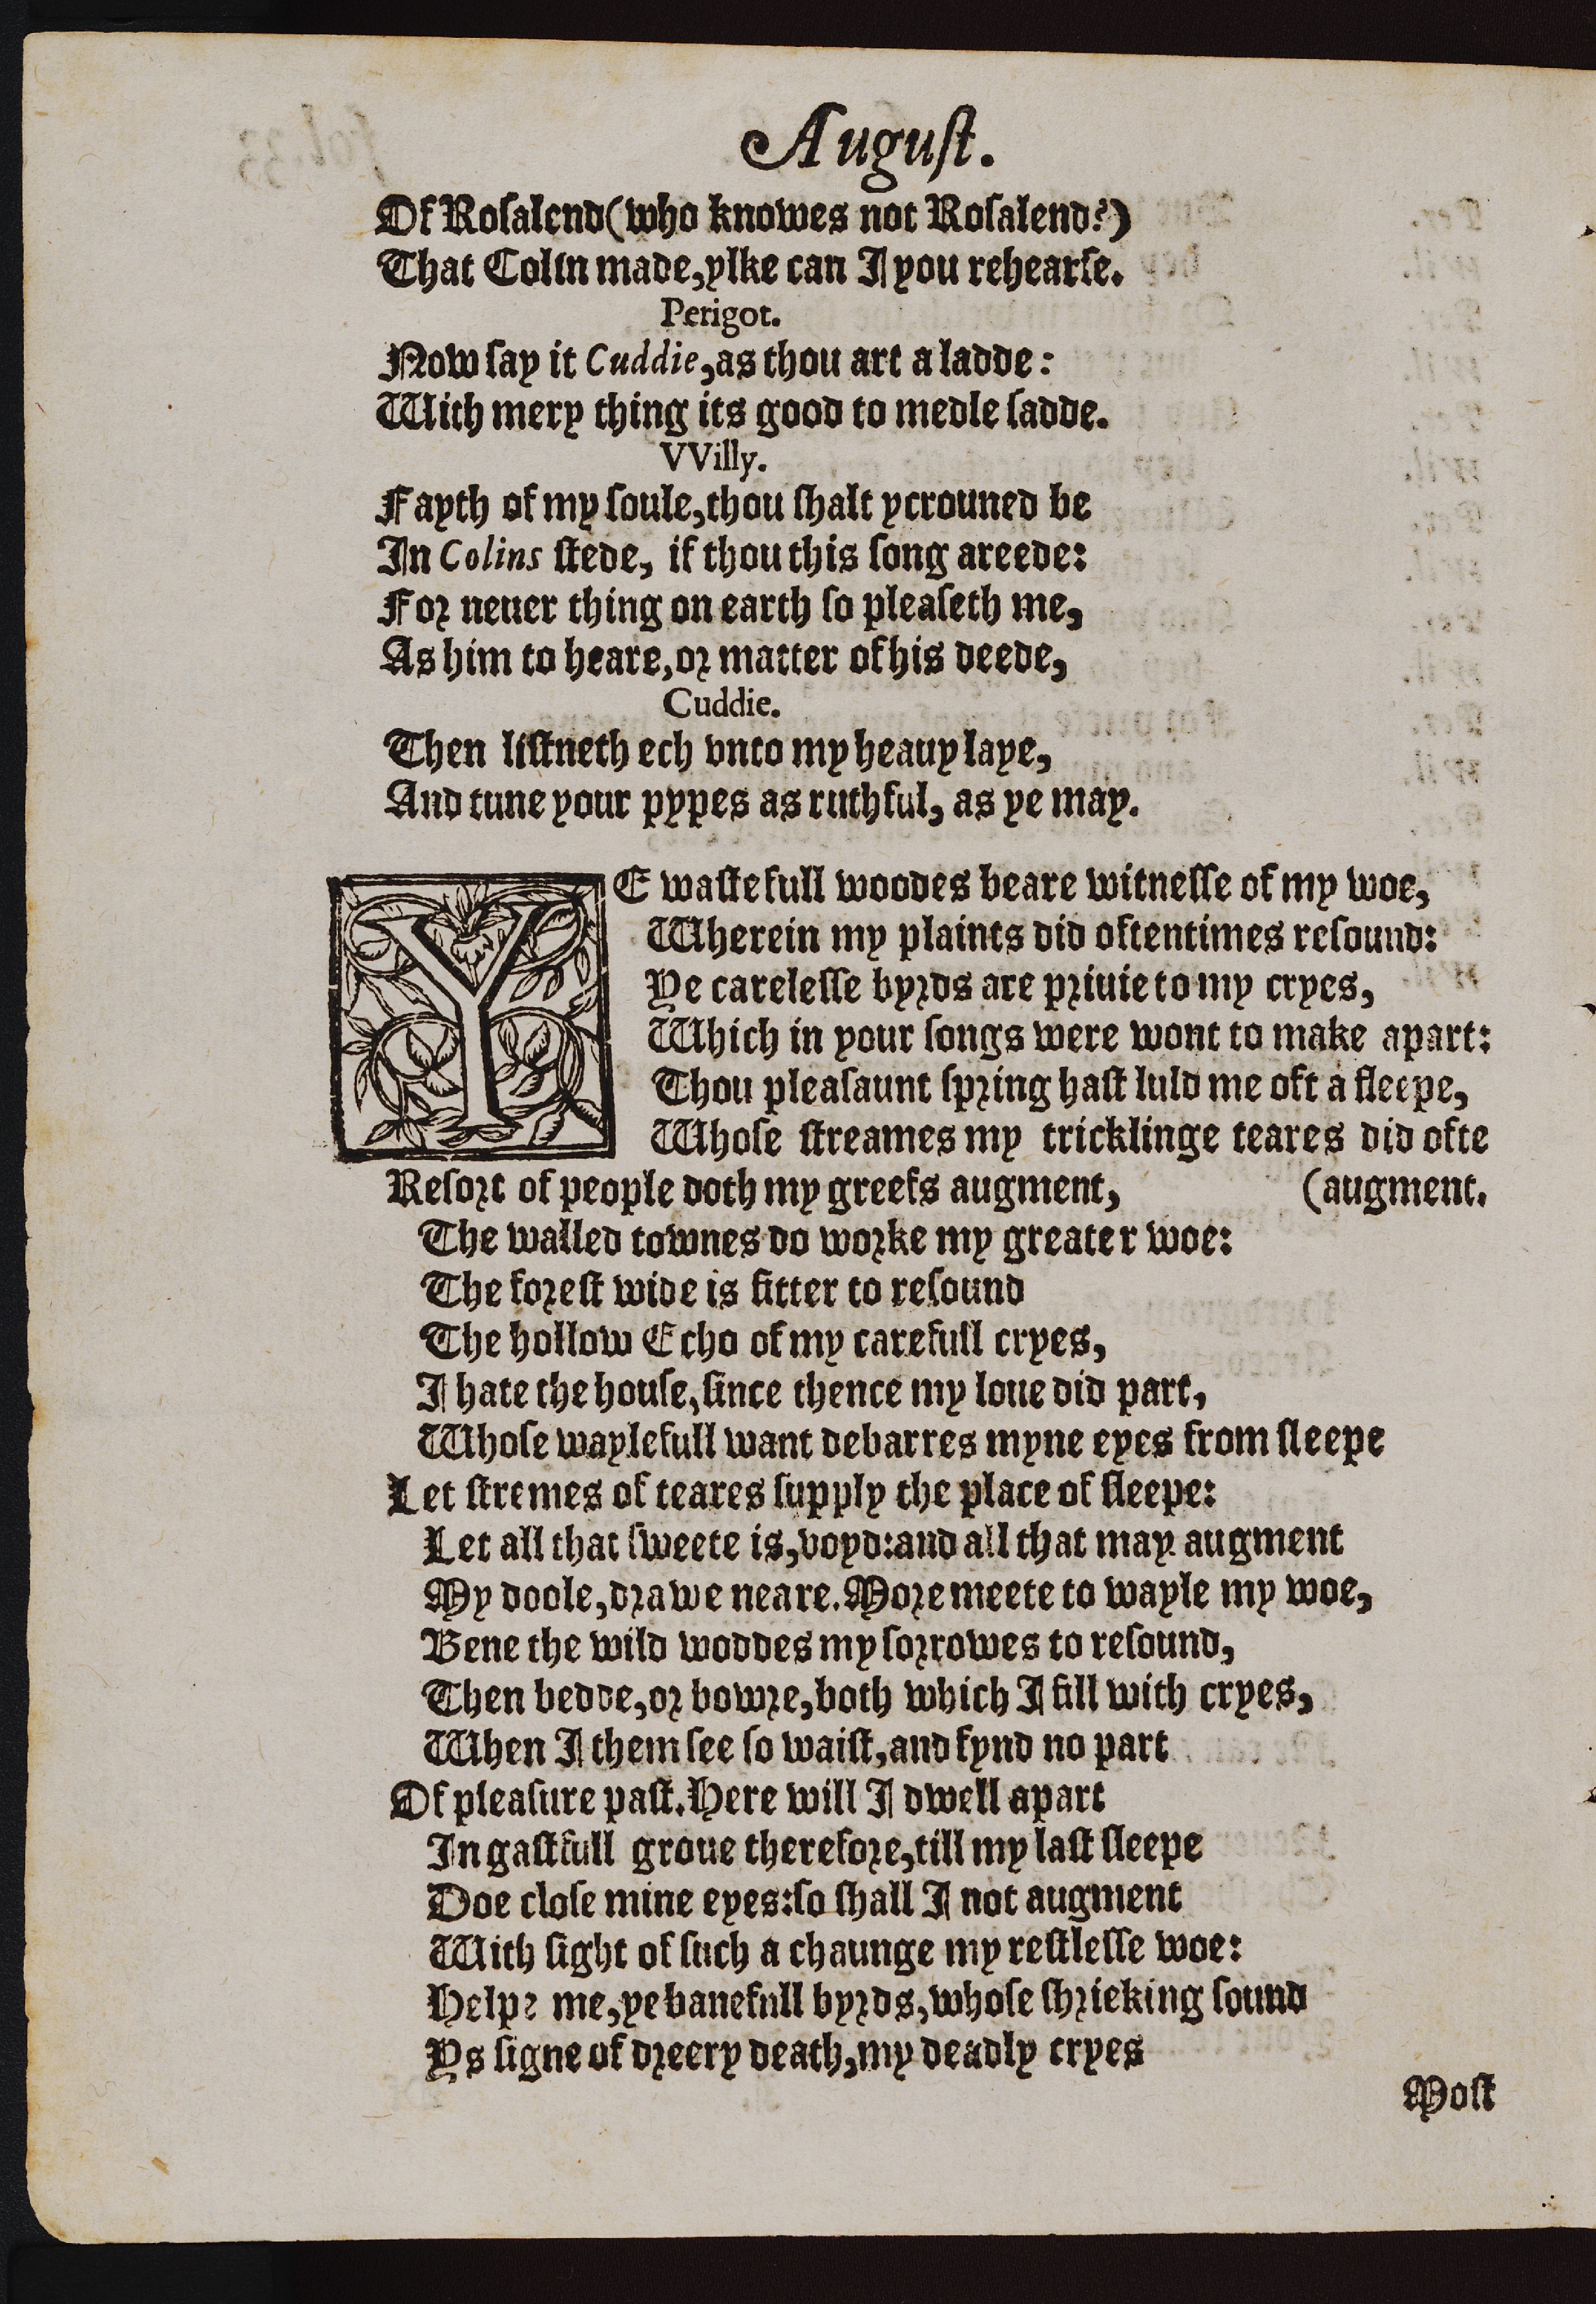 Auguſt.
Of Roſalend (who knowes not Roſalend?)
That Colin made, ylke can I you rehearſe.
Perigot.
Now ſay it Cuddie, as thou art a ladde:
With mery thing its good to medle ſadde.
VVilly.
Fayth of my ſoule, thou ſhalt ycrouned be
In Colins ſtede, if thou this ſong areede:
For neuer thing on earth ſo pleaſeth me,
As him to heare, or matter of his deede,
Cuddie.
Then liſtneth ech vnto my heauy laye,
And tune your pypes as ruthful, as ye may.
YE waſtefull woodes beare witneſſe of my woe,
Wherein my plaints did oftentimes reſound:
Ye careleſſe byrds are priuie to my cryes,
Which in your ſongs were wont to make apart:
Thou pleaſaunt ſpring haſt luld me oft a ſleepe,
Whoſe ſtreames my tricklinge teares did ofte
Reſort of people doth my greefs augment, (augment.
The walled townes do worke my greater woe:
The foreſt wide is fitter to reſound
The hollow Echo of my carefull cryes,
I hate the houſe, ſince thence my loue did part,
Whoſe waylefull want debarres myne eyes from ſleepe
Let ſtremes of teares ſupply the place of ſleepe:
Let all that ſweete is, voyd: and all that may augment
My doole, drawe neare. More meete to wayle my woe,
Bene the wild woddes my ſorrowes to reſound,
Then bedde, or bowre, both which I fill with cryes,
When I them ſee ſo waiſt, and fynd no part
Of pleaſure paſt. Here will I dwell apart
In gaſtfull groue therefore, till my laſt ſleepe
Doe cloſe mine eyes: ſo ſhall I not augment
With ſight of ſuch a chaunge my reſtleſſe woe:
Helpe me, ye banefull byrds, whoſe ſhrieking ſound
Ys ſigne of dreery death, my deadly cryes
Moſt